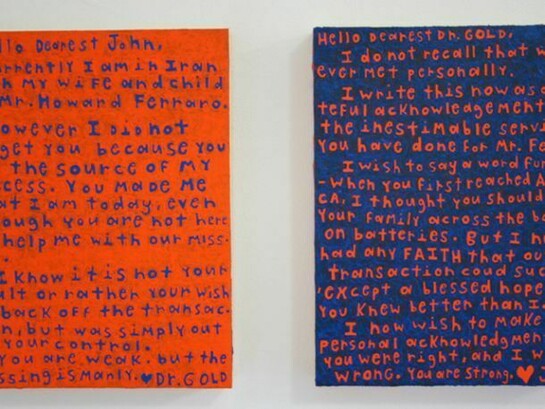 llo Dearest John,
rrently I am in Iran
h my wife and child
Mr. Howard Ferraro.
owever I Did not
get you because you
the source of my
cess. You made me
at I am today, even
ough you are not here
help me with our miss-
.
I know it is not your
ult or rather your wish
back off the transac-
n, but was simply out
your control.
You are weak. but the
ssing is manly. ♥ Dr. GOLD
Hello Dearest Dr. GOLD,
I do not recall that w
ever met personally.
I write this now as a
teful acknowledgement
the inestimable servi
you have done for Mr. Fe
I wish to say a word fur
-when you first reached A
CA, I thought you should
your family across the b
on batteries. But I n
had any FAITH that ou
transaction coud suc
except a blessed hope
you knew better than I.
I now wish to make
personal acknowledgmen
you were right, and I w
wrong. You are strong. ♥ J